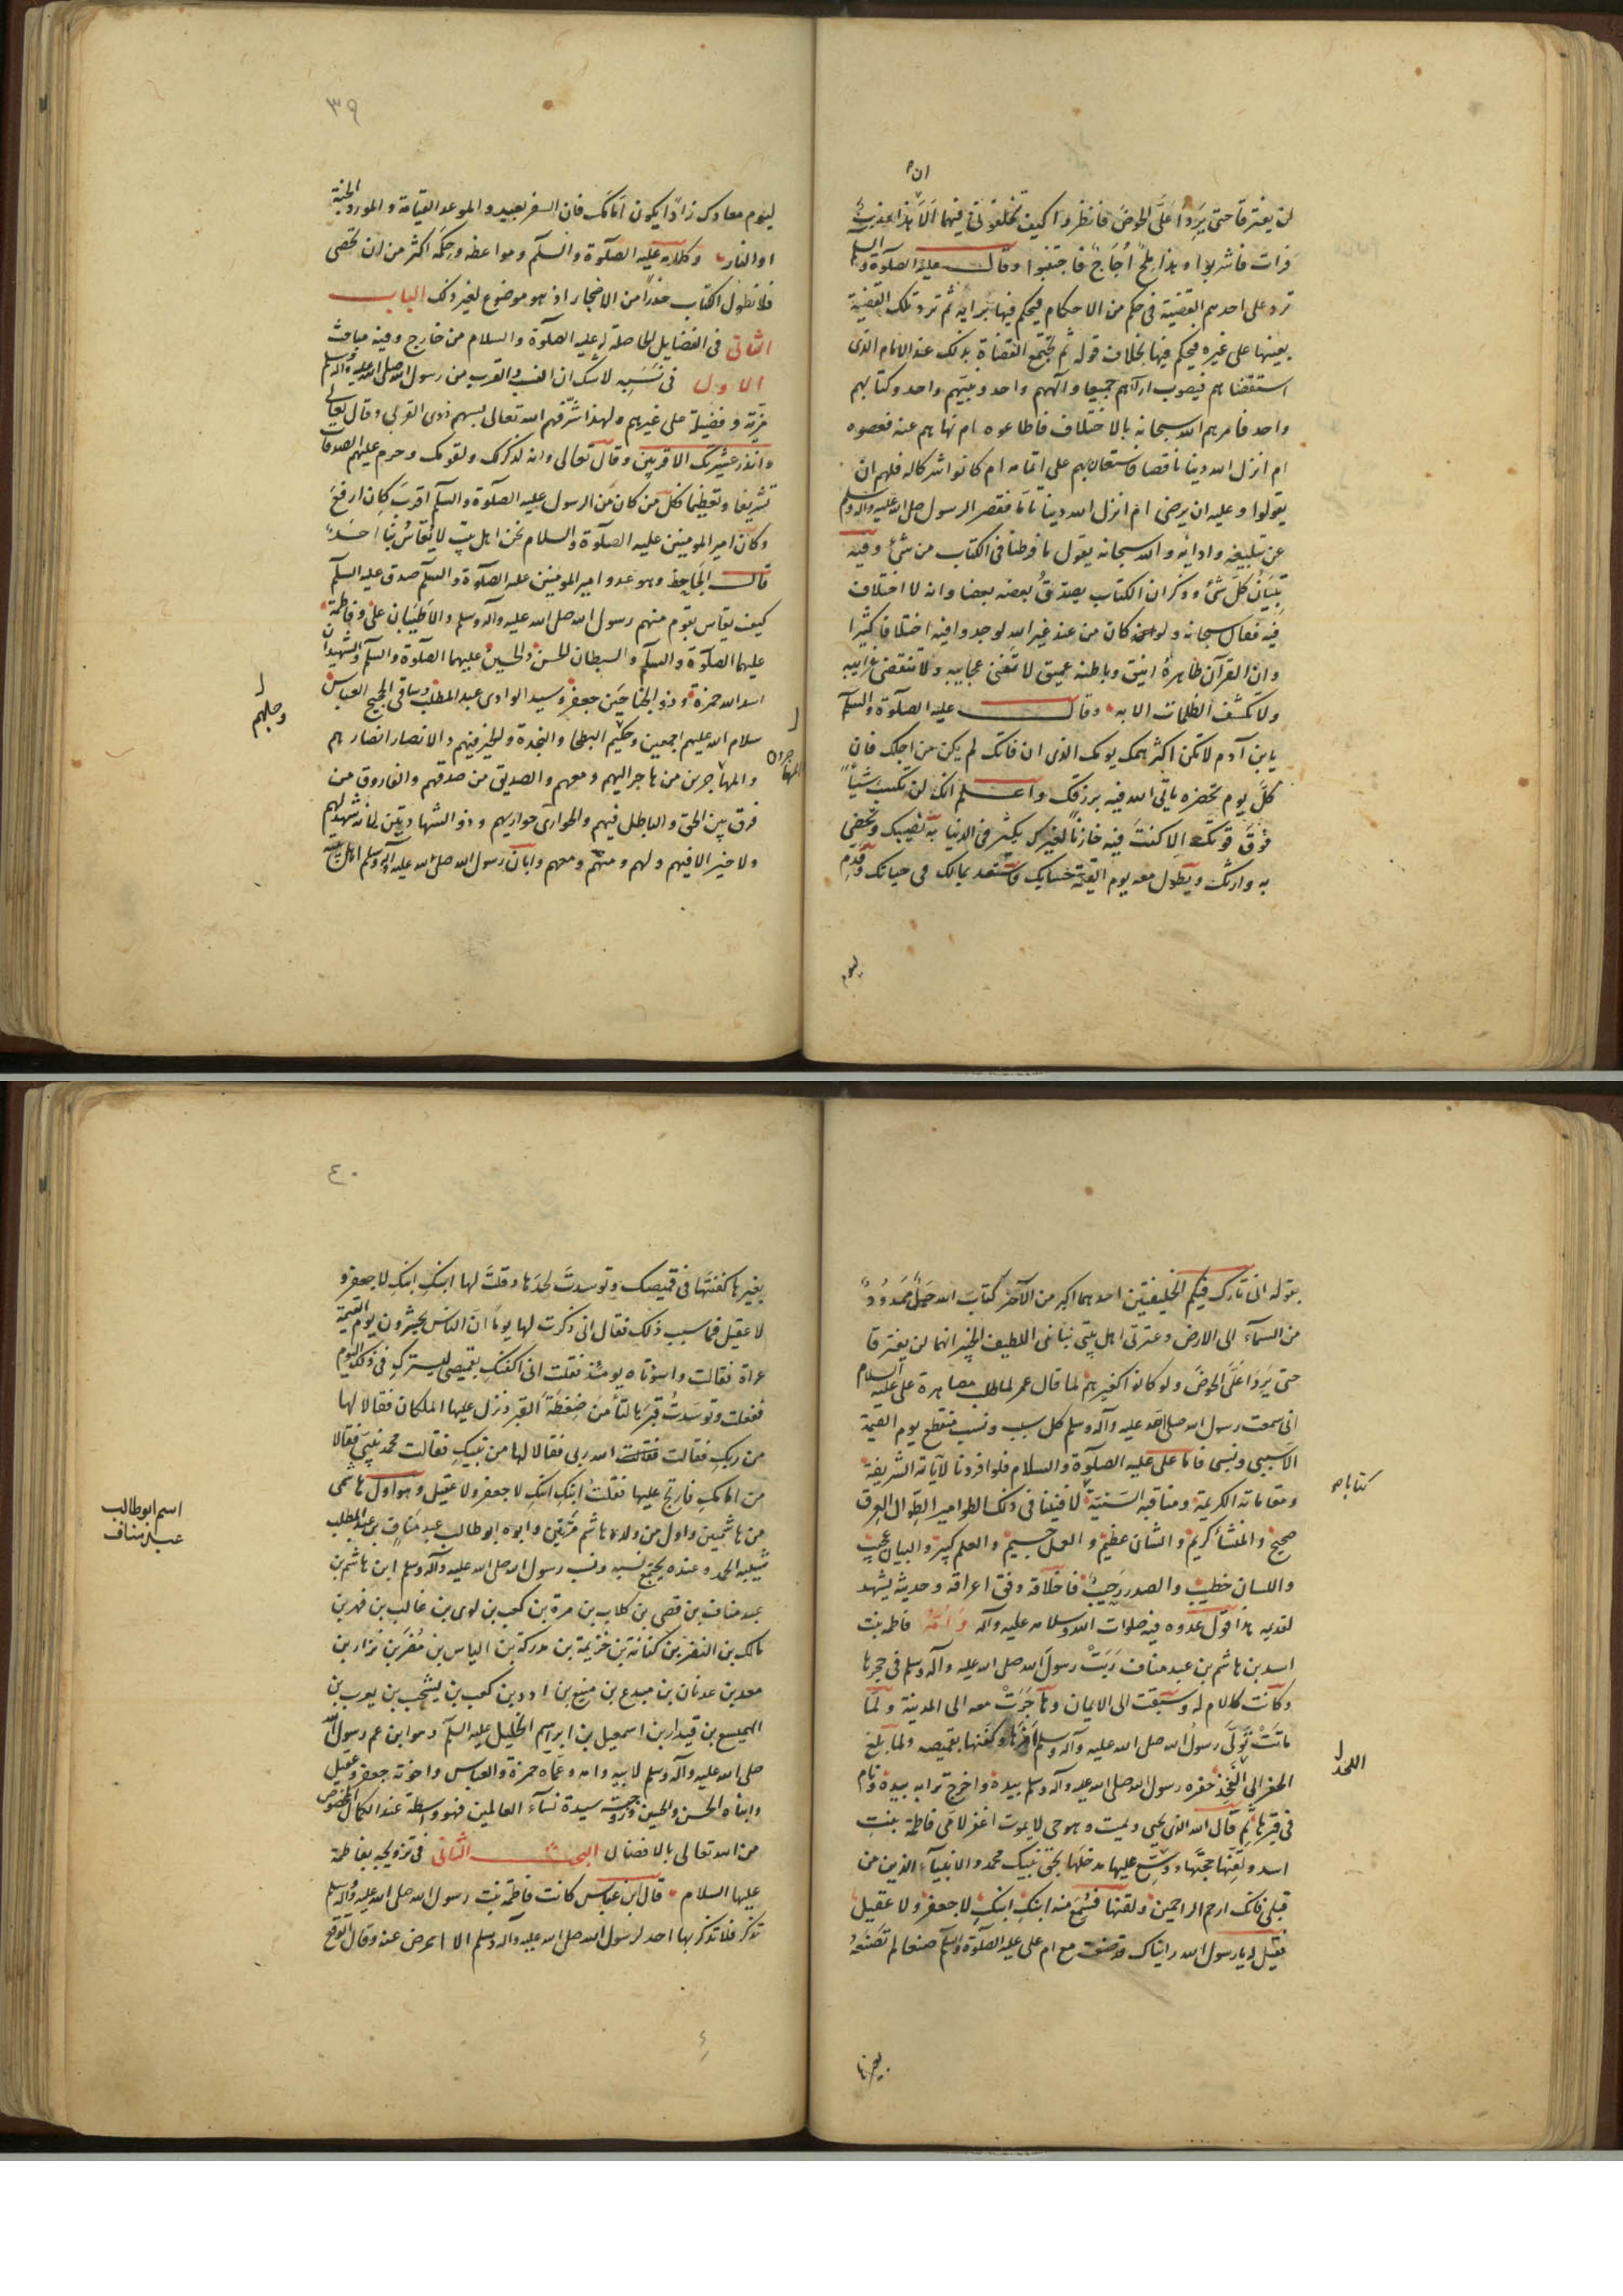 ان
لن يفترقا حتى يَرِدا عَلَى الحوض فانظروا كيف تخلفونى فيهما اَلَا هذا عذبٌ
فرات فاشربوا وهذا مِلحٌ اُجَاجٌ فاجتنبوا وقال عليه الصلوة والسلم
ترد على احدهم القضية فى حكم من الاحكام فيحكم فيها برايه ثم ترد تلك القضية
بعينها على غيره فيحكم فيها بخلاف قوله ثم تجتمع القضاة بذلك عند الامام الذى
استقضاهم فيصوب اراءهم جميعا والههم واحد ونبيّهم واحد وكتابهم
واحد فامرهم الله سبحانه بالاختلاف فاطاعوه ام نهاهم عنه فعصوه
ام انزل الله دينا ناقصا فاستعان بهم على اتمامه ام كانوا شركاله فلهم ان
يقولوا وعليه ان يرضى ام انزل الله دينا تاما فقصر الرسول صلى الله عليه واله وسلم
عن تبليغه وادائه والله سبحانه يقول ما فرطنا فى الكتاب من شئ وفيه
تِبيَانُ كلّ شئ وذكر ان الكتاب يصدقُ بعضه بعضا وانه لا اختلاف
فيه فقال سبحانه ولو كان من عند غير الله لوجدوا فيه اختلافا كثيرا
وان القرآن ظاهرهُ انيق وباطنه عميق لا تفنى عجايبه ولا تنقضى غرايبه
ولا تكشف الظلمات الا به وقال عليه الصلوة والسلم
يابن آدم لا تكن اكثر همك يومك الذى ان فاتك لم يكن من اجلك فان
كلّ يوم تحضره ياتى الله فيه برزقك واعلم انك لن تكسب شيأً
فوق قوتك الا كنتَ فيه خازناً لغيرك يكثر فى الدنيا به نصيبك وتخظى
به وارثك ويطول معه يوم القيمة حسابك فاستعد بمالك فى حياتك وقدِّم
ليوم
٣٩
ليوم معادك زادًا يكون اَمَامَك فان السفر بعيد والموعد القيامة والمورد الجنة
او النار وكلامه عليه الصلوة والسلم ومواعظه وحِكَمه اكثر من ان تحصى
فلا نطول الكتاب حذراً من الاضجار اذ هو موضوع لغير ذلك الباب
الثانى فى الفضايل الحاصلة له عليه الصلوة والسلام من خارج وفيه مباحث
الاول فى نَسَبِه لا شك ان النسب والقرب من رسول الله صلى الله عليه وآله وسلم
مزيّة وفضيلة على غيرهم ولهذا شرّفهم الله تعالى بسهم ذوى القربى وقال تعالى
وانذر عشيرتك الاقربين وقال تعالى وانه لذكرلك ولقومك وحرم عليهم الصدقات
تشريفا وتعظيما فكل من كان من الرسول عليه الصلوة والسلم اقربَ كان ارفعَ
وكان امير المومنين عليه الصلوة والسلام نحن اهل بيتٍ لا يُقاسُ بنا احَدٌ
قال الجَاحِظ وهو عدو امير المومنين عليه الصلوة والسلم صدق عليه السلم
كيف يقاس بقوم منهم رسول الله صلى الله عليه وآله وسلم والاَطيَبَان على وفاطمة
عليهما الصلوة والسلم والسبطان الحسن والحسين عليهما الصلوة والسلم والشهيدان
اسد الله حمزة وذو الجناحَين جعفر وسيد الوادى عبد المطلب وساقى الحجيج العباس
سلام الله عليهم اجمعين وحكيم البطحا والنجدة والخير فيهم والانصار انصارهم
والمهاجرين من هاجر اليهم ومعهم والصديق من صدقهم والفاروق من
فرق بين الحق والباطل فيهم والحوارى حواريهم وذو الشهادتين لانه شهد لهم
ولا خير الا فيهم ولهم ومنهم ومعهم وابان رسول الله صلى الله عليه وآله وسلم اهل بيته
وحليم
المهاجرون
بقوله انى تارك فيكم الخليفتين احدهما اكبر من الآخر كتابَ الله حَبلٌ مَمدُودٌ
من السمآء الى الارض وعترتى اهل بيتى نبانى اللطيف الخبير انهما لن يفترقا
حتى يَرِدَا عَلَىَّ الحوضَ ولو كانوا كغيرهم لما قال عمر لما طلب مصاهرة على عليه السلام
انى سمعت رسول الله صلى الله عليه وآله وسلم كل سبب ونسب منقطع يوم القيمة
الا سببى ونسبى فاما على عليه الصلوة والسلام فلو افردنا لآياته الشريفة
ومقاماته الكريمة ومناقبه السَنيَّة لافنينا فى ذلك الطوامير الطِوال العِرق
صحيح والمنشأ كريم والشان عظيم والعمل جسيم والعلم كبير والبيان عجيب
واللسان خطيب والصدر رَحيبٌ فاخلاقه وفق اعراقه وحديثه يشهد
لقديمه هذا قول عدوه فيه صلوات الله وسلامه عليه وآله وَاُمُّهُ فاطمه بنت
اسد بن هاشم بن عبد مناف رَبَّتْ رسولَ الله صلى الله عليه وآله وسلم فى حجرها
وكانت كالام له وسبقت الى الايمان وهَاجَرَتْ معه الى المدينة ولمَّا
مَاتَتْ تولَّى رسولُ الله صلى الله عليه وآله وسلم امرها وكفنها بقميصه ولما بلغ
الحفر الى اللَّحد حفره رسول الله صلى الله عليه وآله وسلم بيده واخرج ترابه بيده ونام
فى قبرها ثم قال الله الذى يحيى ويميت وهو حى لا يموت اغفر لامى فاطمة بنتِ
اسد ولقِّنها حجتها ووسّع عليها مدخلَها بحق نبيك محمد والانبيآء الذين من
قبلى فانك ارحم الراحمين ولقنها فسُمِعَ منه ابنكِ ابنكِ لا جعفر ولا عقيل
فقيل له يا رسول الله رايناك قد صنعت مع ام على عليه الصلوة والسلم صنعا لم تَصْنَعْهُ
كتاباه
اللحد
بغيرها
٤٠
بغيرها كفنتَها فى قميصك وتوسدتَ لحدَها وقلتَ لها ابنكِ ابنكِ لا جعفر و
لا عقيل فما سبب ذلك فقال انى ذكرت لها يوماً انّ الناس يحشرون يوم القيمة
عراة فقالت واسوءتاه يومئذ فقلت انى اكفنكِ بقميصى ليسترك فى ذلك اليوم
ففعلت وتوسدتُ قبرَها لتأمَن ضِغْطَةَ القبر ونزل عليها الملكان فقالا لها
من ربكِ فقالت الله ربى فقالا لها من نبيكِ فقالت محمد نبيى فقالا
من امامكِ فارتج عليها فقلتُ ابنكِ ابنكِ لا جعفر ولا عقيل وهو اول هاشمى
من هاشميين واول من ولده هاشم مَرَّتَين وابوه ابو طالب عبد مناف بن عبد المطلب
شيبه الحمد وعنده يجتمع نسبه ونسب رسول الله صلى الله عليه وآله وسلم ابن هاشم بن
عبد مناف بن قصى بن كلاب بن مرة بن كعب بن لوى بن غالب بن فهر بن
مالك بن النضر بن كنانة بن خزيمة بن مدركة بن الياس بن مُضَرَ بن نزار بن
معد بن عدنان بن مبدع بن منيع بن ادد بن كعب بن يشجب بن يعرب بن
الهميسع بن قيدار بن اسمعيل بن ابرهيم الخليل عليه السلم وهو ابن عم رسول الله
صلى الله عليه وآله وسلم لابيه وامه وعمَّاه حمزة والعباس واخوته جعفر وعقيل
وابناه الحسن والحسين وزوجته سيدة نسآء العالمين فهو واسطة عند الكمال المخصوص
من الله تعالى بالافضال البحث الثانى فى تزويجه بفاطمة
عليها السلام قال ابن عباس كانت فاطمة بنت رسول الله صلى الله عليه وآله وسلم
تذكر فلا تذكر بها احد لرسول الله صلى الله عليه وآله وسلم الا اعرض عنه وقال اتوقع
اسم ابو طالب
عبد مناف